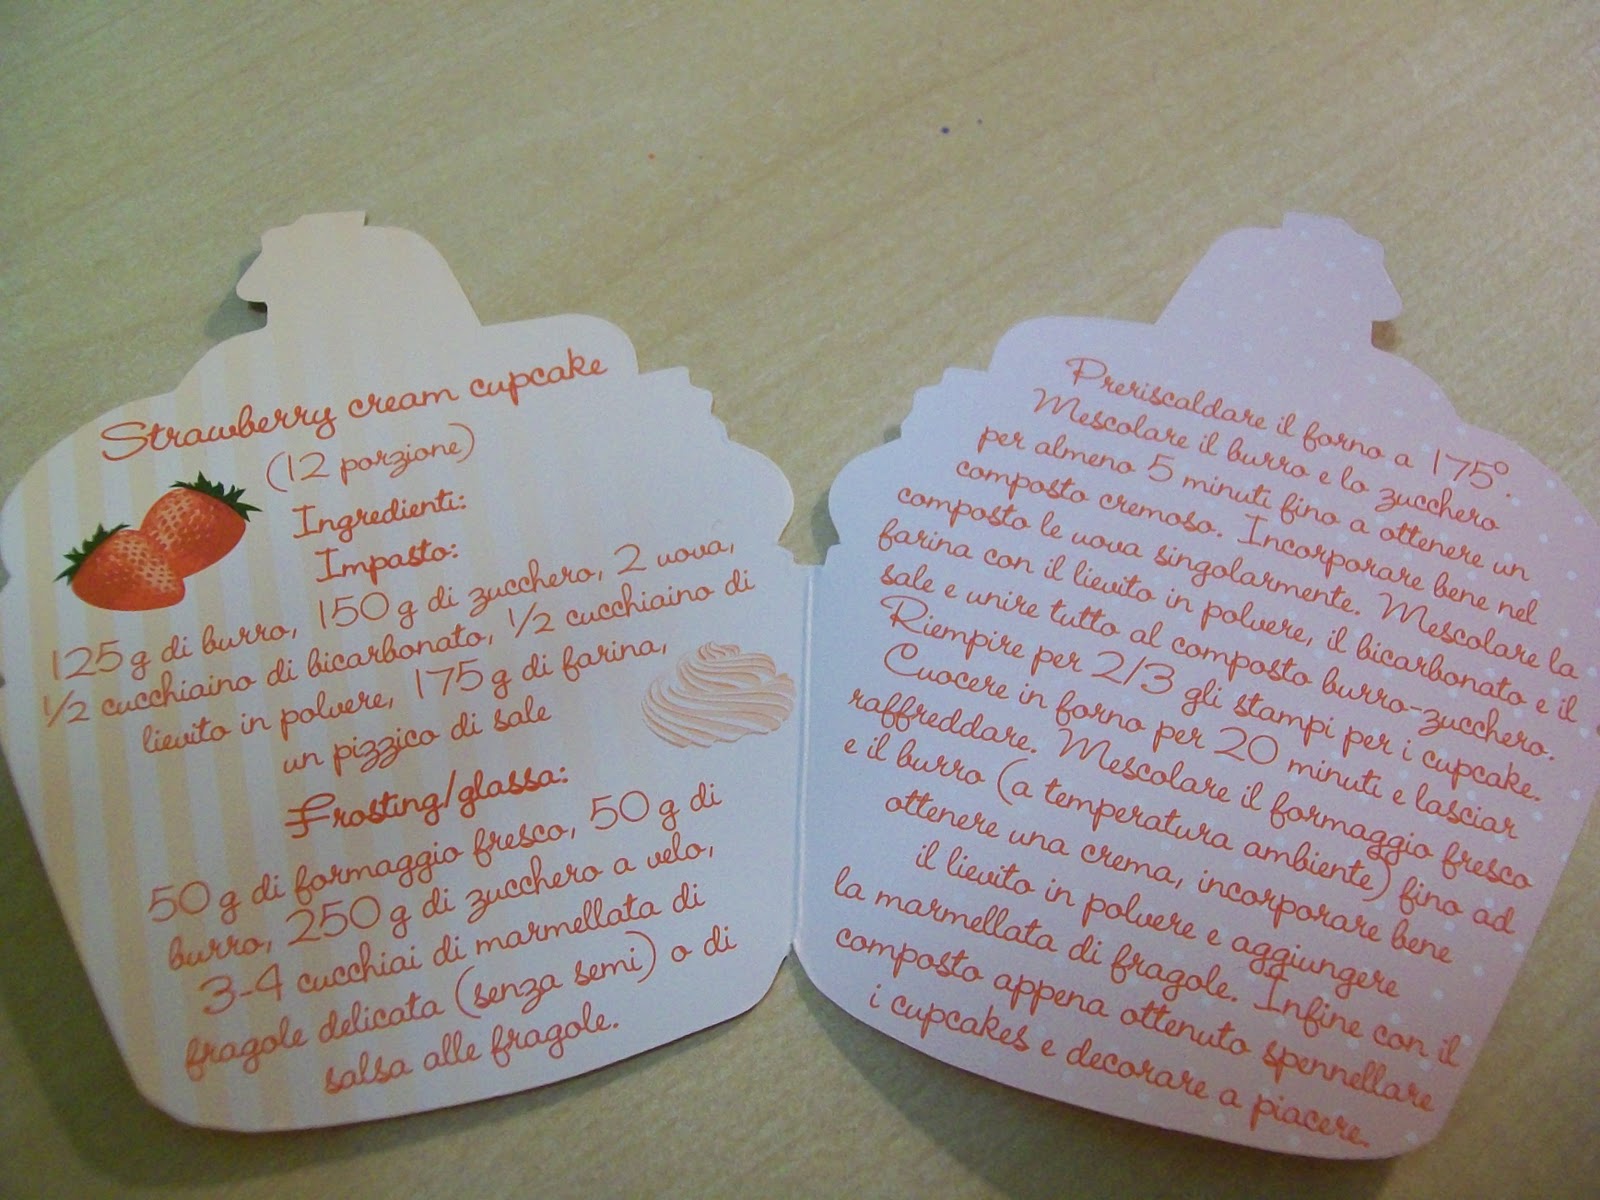 Strawberry cream cupcake
(12 porzione)
Ingredienti:
Impasto:
125 g di burro, 150 g di zucchero, 2 uova,
1/2 cucchiaino di bicarbonato, 1/2 cucchiaino di
lievito in polvere, 175 g di farina,
un pizzico di sale
Frosting/glassa:
50 g di formaggio fresco, 50 g di
burro, 250 g di zucchero a velo,
3-4 cucchiai di marmellata di
fragole delicata (senza semi) o di
salsa alle fragole.
Preriscaldare il forno a 175°.
Mescolare il burro e lo zucchero
per almeno 5 minuti fino a ottenere un
composto cremoso. Incorporare bene nel
composto le uova singolarmente. Mescolare la
farina con il lievito in polvere, il bicarbonato e il
sale e unire tutto al composto burro-zucchero.
Riempire per 2/3 gli stampi per i cupcake.
Cuocere in forno per 20 minuti e lasciar
raffreddare. Mescolare il formaggio fresco
e il burro (a temperatura ambiente) fino ad
ottenere una crema, incorporare bene
il lievito in polvere e aggiungere
la marmellata di fragole. Infine con il
composto appena ottenuto spennellare
i cupcakes e decorare a piacere.